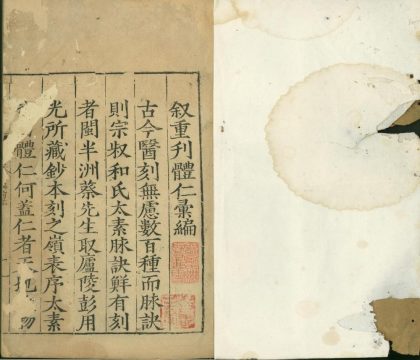 叙重刊體仁彙編
古今醫刻無慮數百種而脉訣
則宗叔和氏太素脉訣鮮有刻
者閩半洲蔡先生取廬陵彭用
光所藏鈔本刻之嶺表序太素
體仁何蓋仁者天地 物